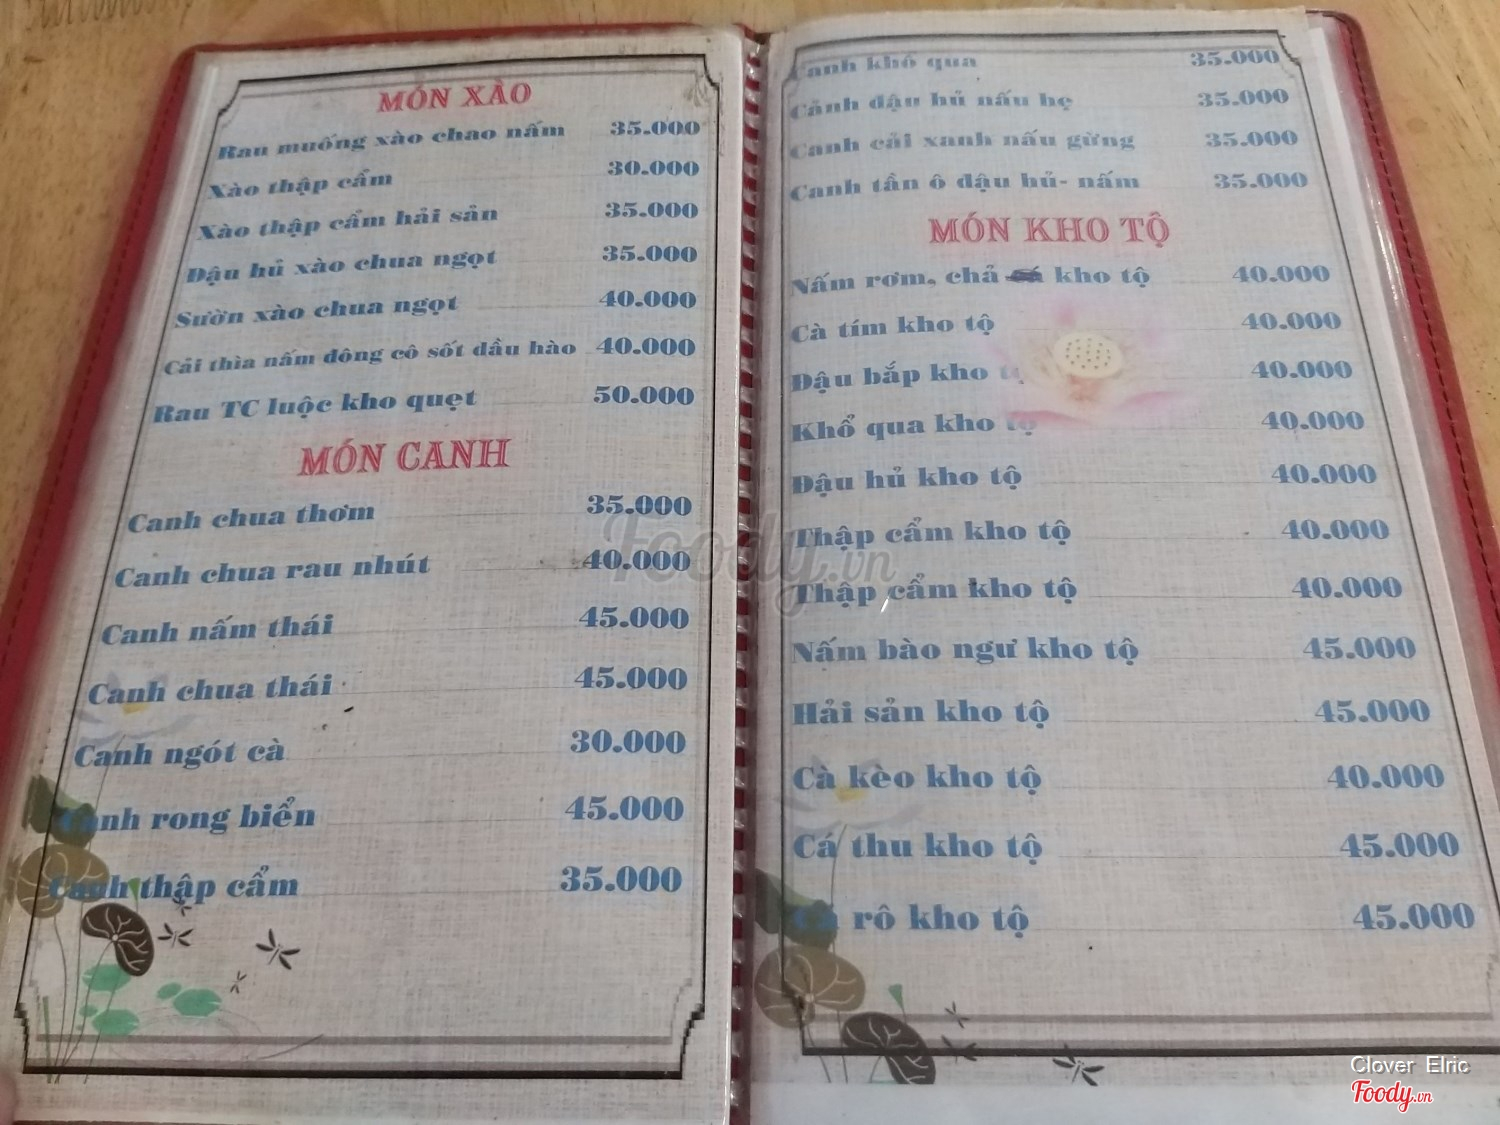 MÓN XÀO
Rau muống xào chao nấm 35.000
Xào thập cẩm 30.000
Xào thập cẩm hải sản 35.000
Đậu hủ xào chua ngọt 35.000
Sườn xào chua ngọt 40.000
Cải thìa nấm đông cô sốt dầu hào 40.000
Rau TC luộc kho quẹt 50.000
MÓN CANH
Canh chua thơm 35.000
Canh chua rau nhút 40.000
Canh nấm thái 45.000
Canh chua thái 45.000
Canh ngót cà 30.000
Canh rong biển 45.000
Canh thập cẩm 35.000
Canh khổ qua 35.000
Cảnh đậu hủ nấu hẹ 35.000
Canh cải xanh nấu gừng 35.000
Canh tần ô đậu hủ- nấm 35.000
MÓN KHO TỘ
Nấm rơm, chả kho tộ 40.000
Cà tím kho tộ 40.000
Đậu bắp kho tộ 40.000
Khổ qua kho tộ 40.000
Đậu hủ kho tộ 40.000
Thập cẩm kho tộ 40.000
Thập cẩm kho tộ 40.000
Nấm bào ngư kho tộ 45.000
Hải sản kho tộ 45.000
Cà kèo kho tộ 40.000
Cá thu kho tộ 45.000
Cá rô kho tộ 45.000
Foody.vn
Clover Elric
Foody.vn